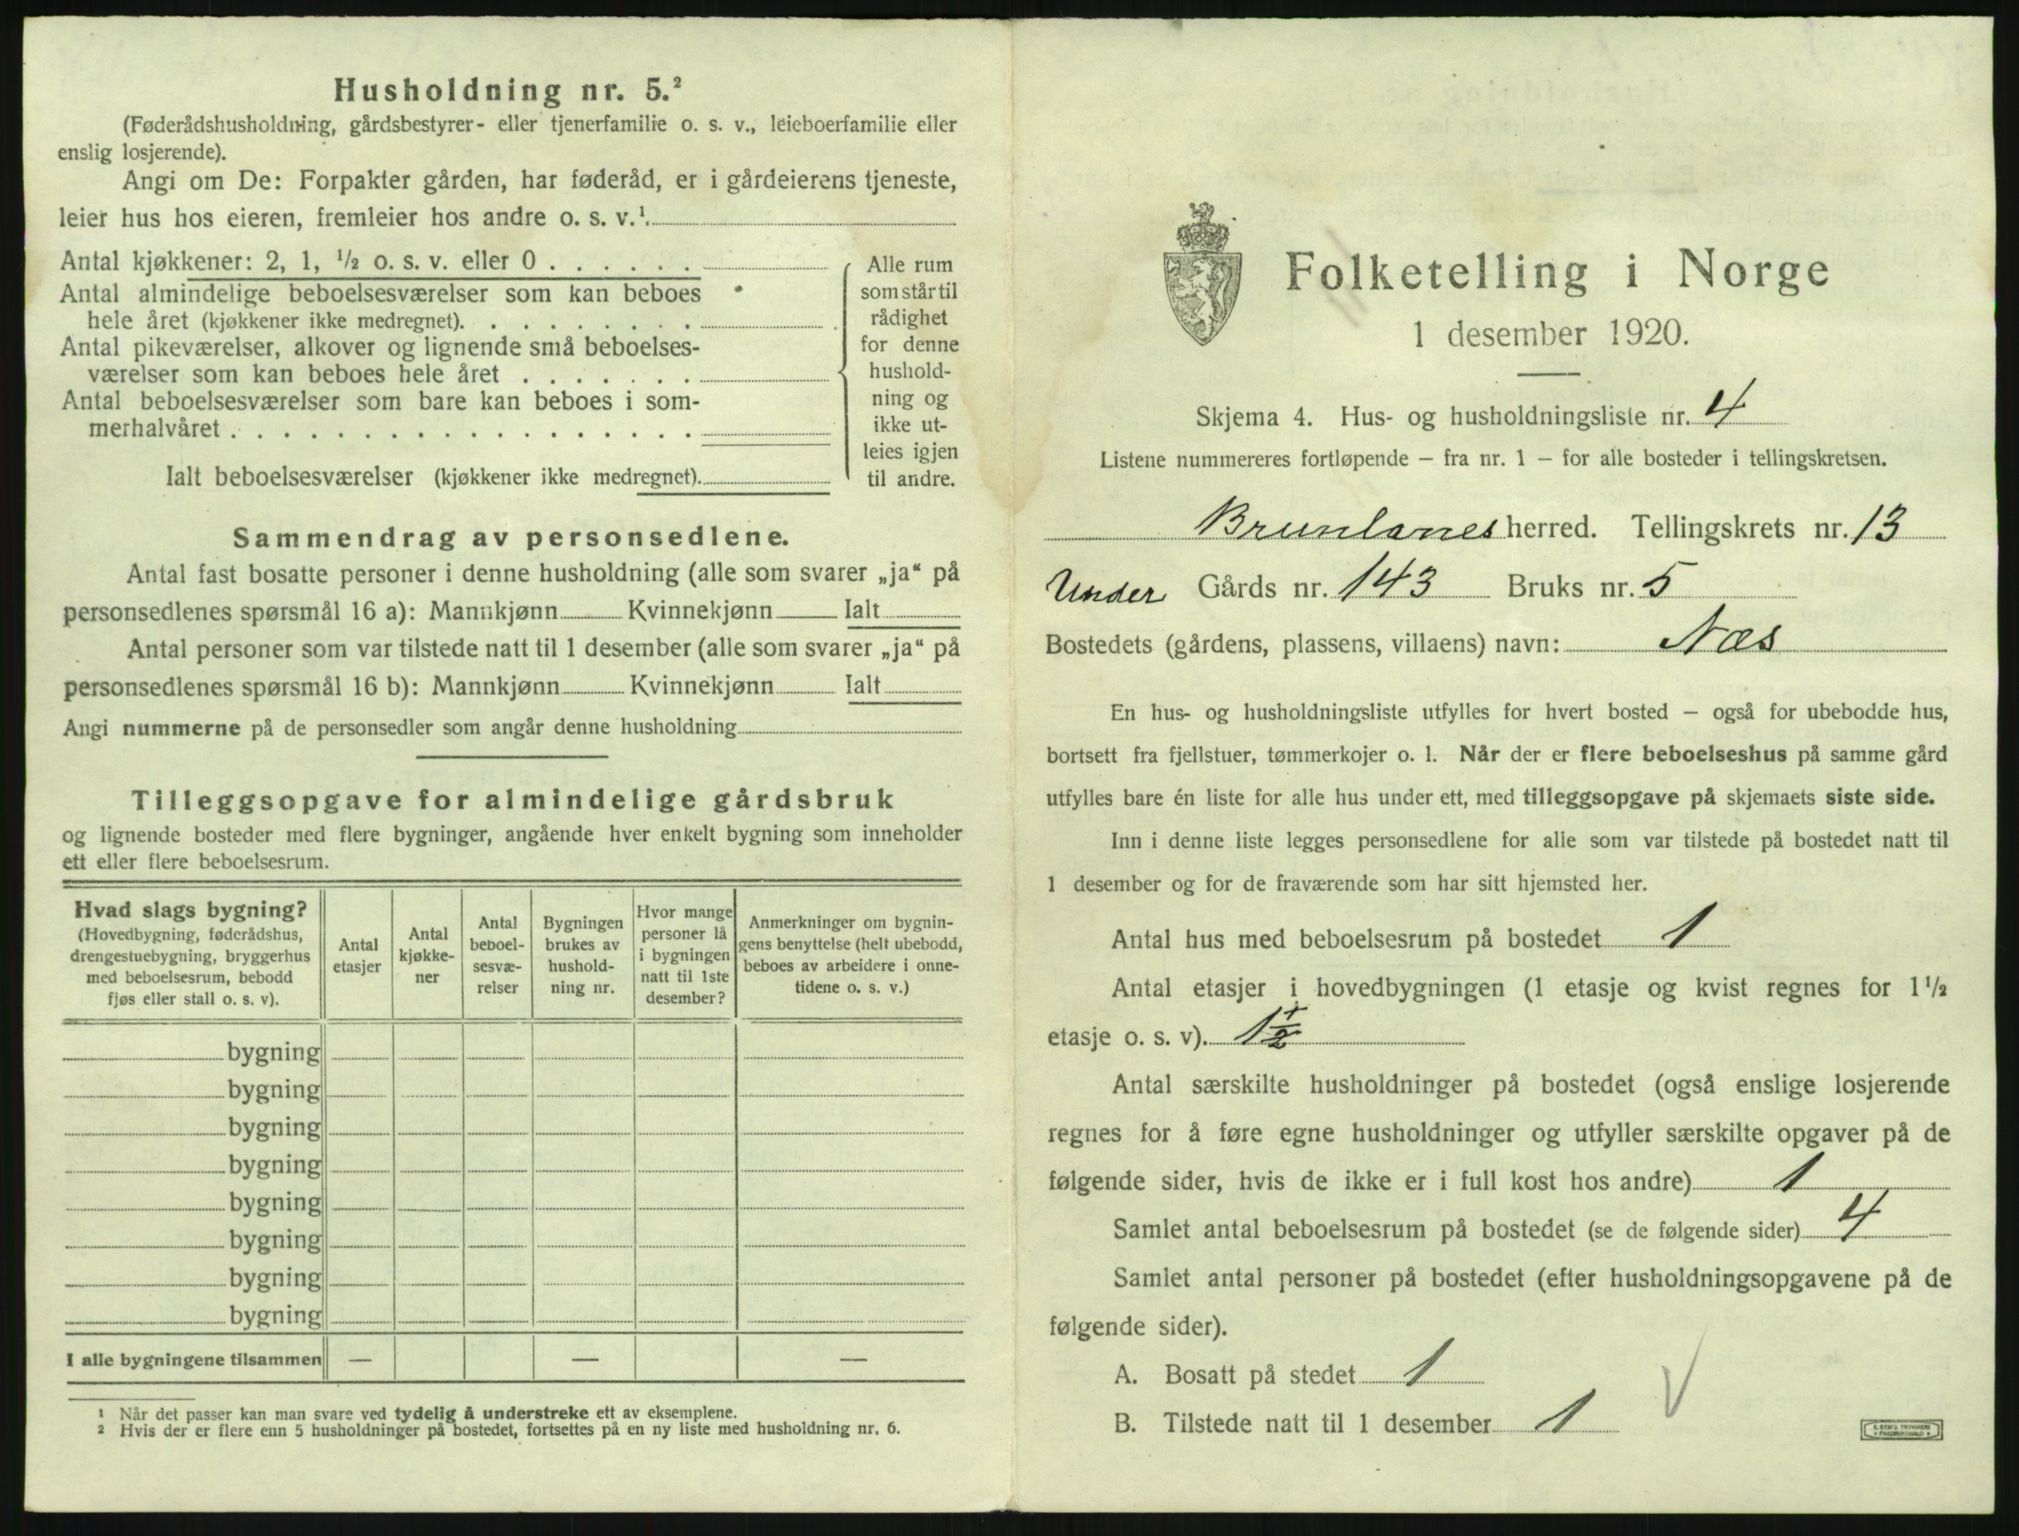 Husholdning nr. 5.²
(Føderådshusholdning, gårdsbestyrer- eller tjenerfamilie o. s. v., leieboerfamilie eller
enslig losjerende).
Angi om De: Forpakter gården, har føderåd, er i gårdeierens tjeneste,
leier hus hos eieren, fremleier hos andre o. s. v.¹
Antal kjøkkener: 2, 1, ½ o. s. v. eller 0 . . . . . .
Antal almindelige beboelsesværelser som kan beboes
hele året (kjøkkener ikke medregnet). . . . . . . . .
Antal pikeværelser, alkover og lignende små beboelses-
værelser som kan beboes hele året . . . . . . .
Antal beboelsesværelser som bare kan beboes i som-
merhalvåret . . . . . . . . . . . . . . . . . .
Ialt beboelsesværelser (kjøkkener ikke medregnet).
Alle rum
som står til
rådighet
for denne
hushold-
ning og
ikke ut-
leies igjen
til andre.
Sammendrag av personsedlene.
Antal fast bosatte personer i denne husholdning (alle som svarer „ja“ på
personsedlenes spørsmål 16 a): Mannkjønn Kvinnekjønn Ialt
Antal personer som var tilstede natt til 1 desember (alle som svarer „ja“ på
personsedlenes spørsmål 16 b): Mannkjønn Kvinnekjønn Ialt
Angi nummerne på de personsedler som angår denne husholdning
Tilleggsopgave for almindelige gårdsbruk
og lignende bosteder med flere bygninger, angående hver enkelt bygning som inneholder
ett eller flere beboelsesrum.
Hvad slags bygning?
(Hovedbygning, føderådshus,
drengestuebygning, bryggerhus
med beboelsesrum, bebodd
fjøs eller stall o. s. v).
Antal
etasjer
Antal
kjøkke-
ner
Antal
beboel-
sesvæ-
relser
Bygningen
brukes av
hushold-
ning nr.
Hvor mange
personer lå
i bygningen
natt til 1ste
desember?
Anmerkninger om bygnin-
gens benyttelse (helt ubebodd,
beboes av arbeidere i onne-
tidene o. s. v.)
bygning
bygning
bygning
bygning
bygning
bygning
bygning
bygning
I alle bygningene tilsammen — — —
¹ Når det passer kan man svare ved tydelig å understreke ett av eksemplene.
² Hvis der er flere enn 5 husholdninger på bostedet, fortsettes på en ny liste med husholdning nr. 6.
Folketelling i Norge
1 desember 1920.
Skjema 4. Hus- og husholdningsliste nr. 4
Listene nummereres fortløpende – fra nr. 1 – for alle bosteder i tellingskretsen.
Brunlanes herred. Tellingskrets nr. 13
Under Gårds nr. 143 Bruks nr. 5
Bostedets (gårdens, plassens, villaens) navn: Næs
En hus- og husholdningsliste utfylles for hvert bosted – også for ubebodde hus,
bortsett fra fjellstuer, tømmerkojer o. l. Når der er flere beboelseshus på samme gård
utfylles bare én liste for alle hus under ett, med tilleggsopgave på skjemaets siste side.
Inn i denne liste legges personsedlene for alle som var tilstede på bostedet natt til
1 desember og for de fraværende som har sitt hjemsted her.
Antal hus med beboelsesrum på bostedet 1
Antal etasjer i hovedbygningen (1 etasje og kvist regnes for 1½
etasje o. s. v). 1½
Antal særskilte husholdninger på bostedet (også enslige losjerende
regnes for å føre egne husholdninger og utfyller særskilte opgaver på de
følgende sider, hvis de ikke er i full kost hos andre) 1
Samlet antal beboelsesrum på bostedet (se de følgende sider) 4
Samlet antal personer på bostedet (efter husholdningsopgavene på de
følgende sider).
A. Bosatt på stedet 1
B. Tilstede natt til 1 desember 1